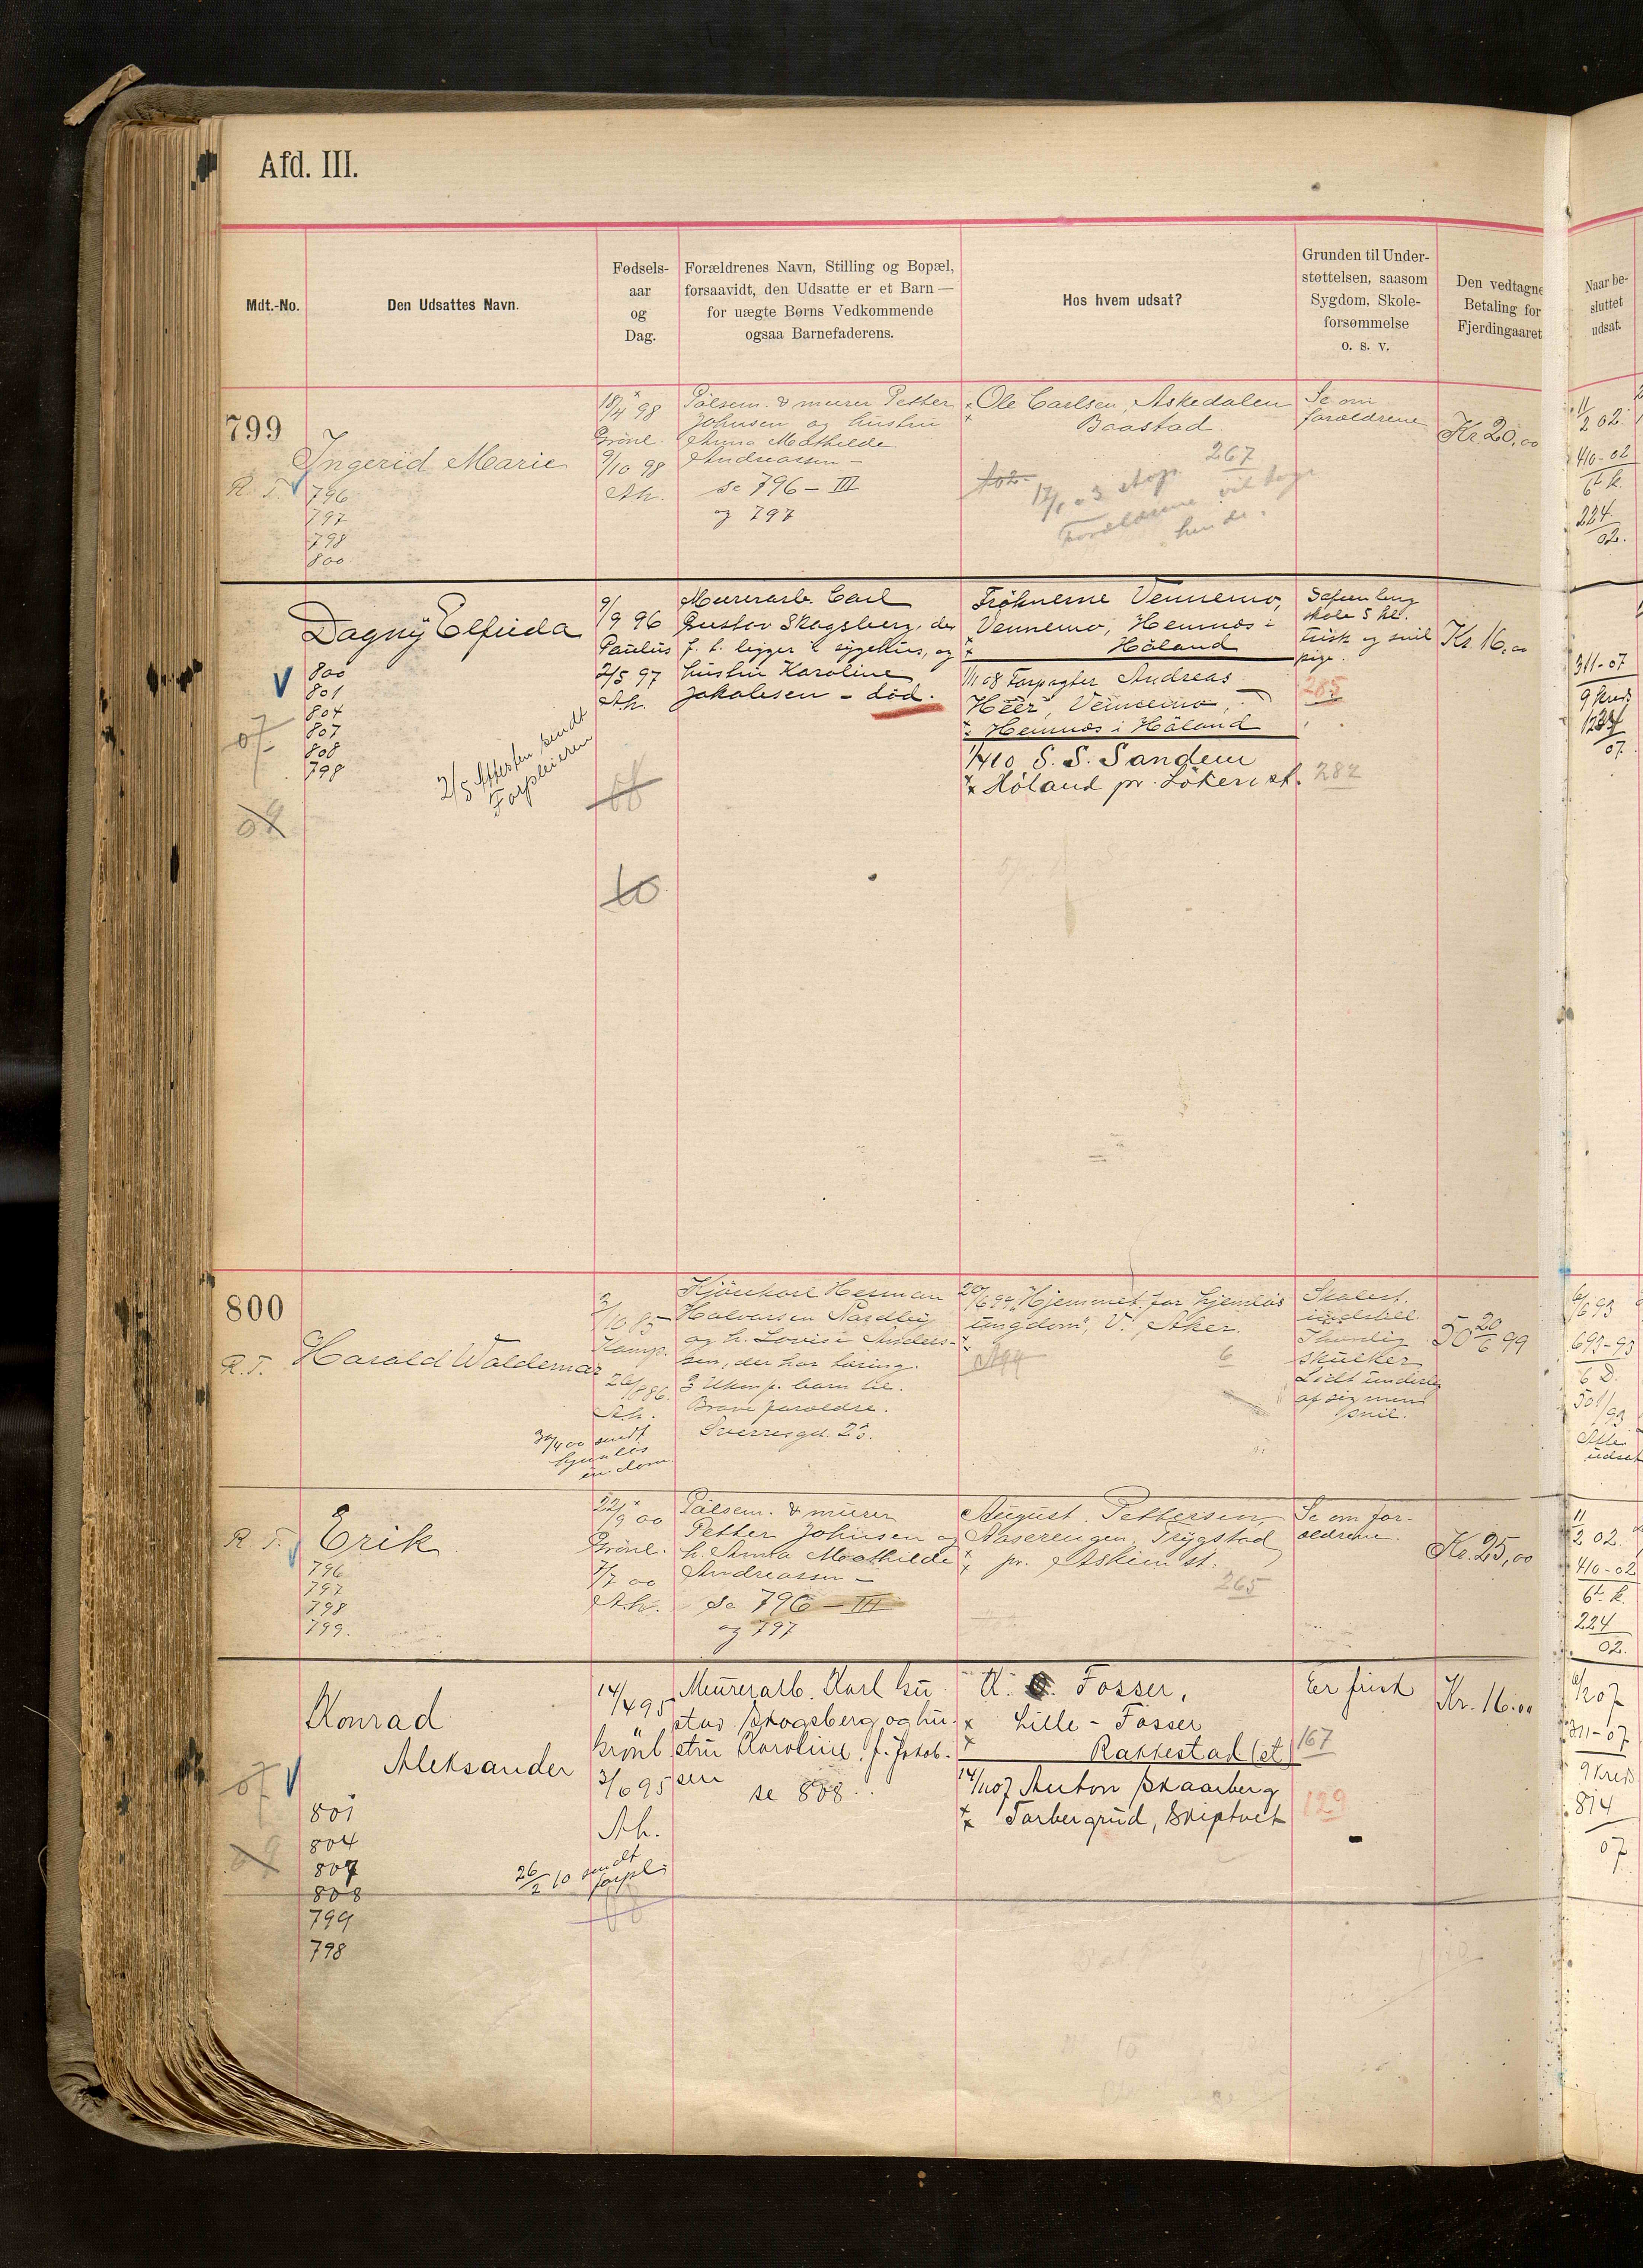 Afd. III.
Mdt.-No.
Den Udsattes Navn.
Fødsels-
aar
og
Dag.
Forældrenes Navn, Stilling og Bopæl,
forsaavidt, den Udsatte er et Barn —
for uægte Børns Vedkommende
ogsaa Barnefaderens.
Hos hvem udsat?
Grunden til Under-
støttelsen, saasom
Sygdom, Skole-
forsømmelse
o. s. v.
Den vedtagne
Betaling for
Fjerdingaaret
Naar be-
sluttet
udsat.
799
Ingerid Marie
R. T.
796
797
798
800
18/4 98
Grönl.
9/10 98
Ah.
Pölsem. & murer Petter
Johnsen og hustru
Anna Mathilde
Andreassen —
se 796 – III
og 797
Ole Carlsen, Askedalen
Baastad
267
17/1 03 stop.
Forældrene vil tage
hende.
Se om
forældrene
Kr. 20,00
11/2 02.
410-02
6te k.
224
02.
Dagny Elfrida
800
801
804
807
808
798
07
09
2/5 Attesten sendt
Forpleieren
9/9 96
Paulus
2/5 97
Ah.
10
Murerarb. Carl
Gustav Skogsberg, der
f. t. ligger i sygehus, og
hustru Karoline
Jakobsen – död.
Fröknerne Vennemo,
Vennemo, Hemnæs i
Höland
1/11 08 Forpagter Andreas
Heer, Vennemo,
Hemnæs i Höland
1/4 10 S. S. Sandem
Höland pr. Löken st.
skole 5 kl.
frisk og snil
pige.
285
282
Kr. 16,00
311-07
9 kreds
1237
07.
800
R. T.
Harald Waldemar
30/4 00 sendt
2/10 85
Kamp.
26/1 86.
Ah.
Kjörekarl Herman
Halvorsen Nordby
og h. Lovise Anders-
sen, der har losing.
3 ukonf. barn til.
Brave foreldre.
Sverresgd. 23.
20/6 99 "Hjemmet for hjemløs
ungdom", V. Aker.
6
Skolest.
indstill.
Skulker
Lidt underlig
af sig men
snil.
50 20/6 99
6/6 93
693-93
6 D.
501/93
udsat
R. T.
Erik
796
797
798
799.
22/9 00
Grönl.
7/7 00
Ah.
Pölsem. & murer
Petter Johnsen og
h. Anna Mathilde
Andreassen —
Se 796 – III
og 797
August Pettersen,
Aaserengen, Trygstad
pr. Askim st.
265
Se om for-
ældrene
Kr. 25,00
11/2 02.
410-02
6te k.
224
02.
Konrad
Aleksander
07
09
801
804
807
808
799
798
26/2 10 sendt
forpl.
14/4 95
Grönl
3/6 95
Ah.
Murerarb. Karl Gu
stav Skogsberg og hu-
stru Karoline, f. Jakob-
sen
se 808.
A. Fosser,
Lille - Fosser
Rakkestad (st)
14/11 07 Anton Skaarberg
Torbergrud, Skiptvet
167
129
Er frisk
Kr. 16.00
311-07
9 kreds
814
07